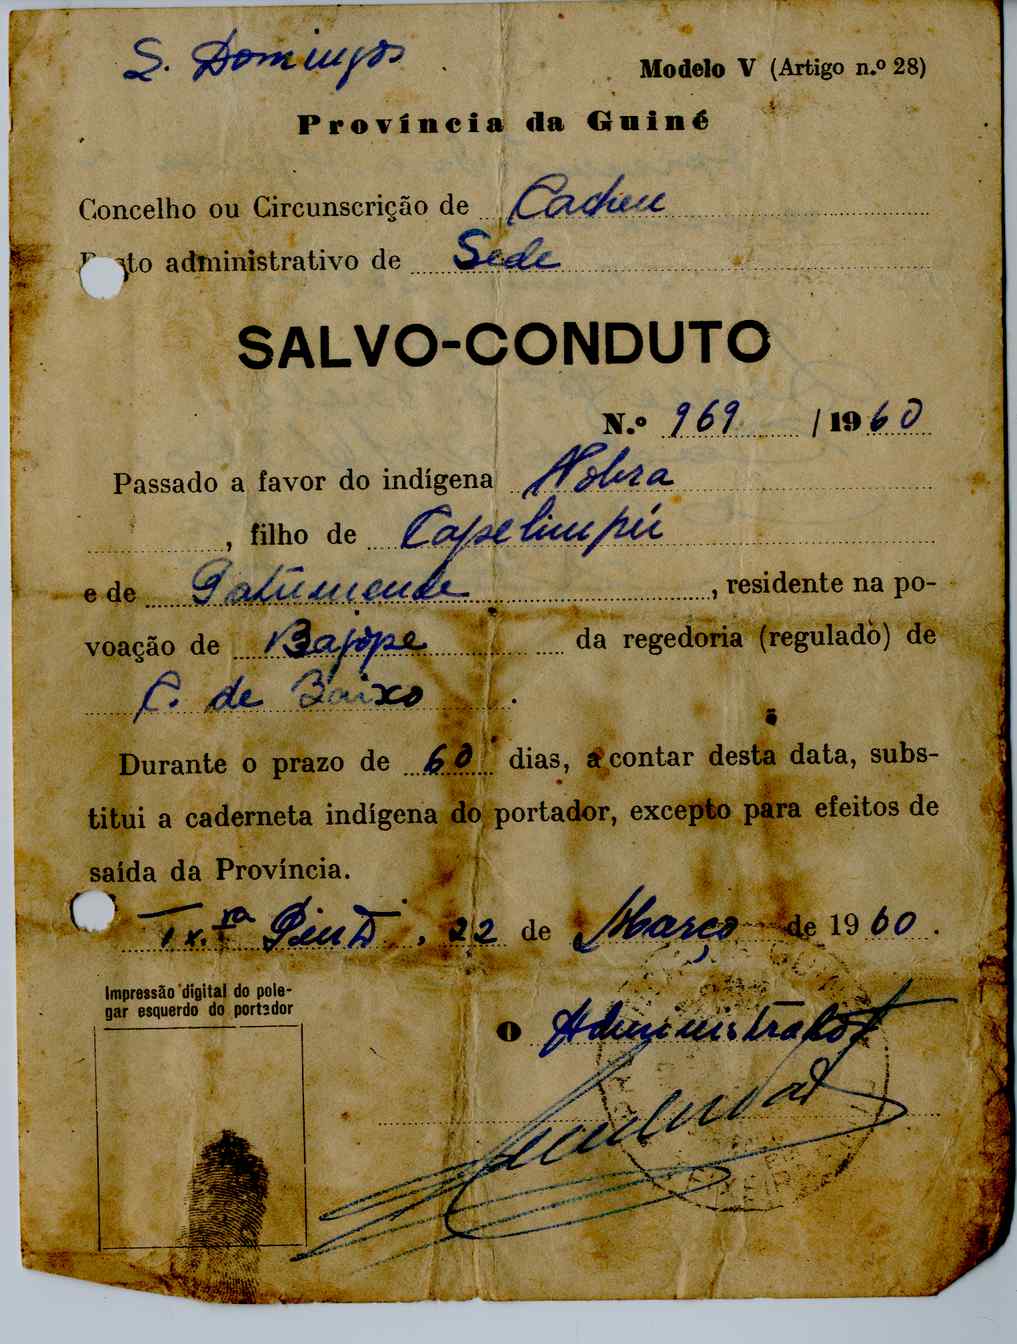 S. Domingos
Modelo V (Artigo n.º 28)
Província da Guiné
Concelho ou Circunscrição de Cacheu
Posto administrativo de Sede
SALVO-CONDUTO
N.º 969 / 1960
Passado a favor do indígena Nobra
, filho de Capelimpú
e de Patumende, residente na po-
voação de Bajope da regedoria (regulado) de
C. de Baixo.
Durante o prazo de 60 dias, a contar desta data, subs-
titui a caderneta indígena do portador, excepto para efeitos de
saída da Província.
Tx.ra Pinto, 22 de Março de 1960.
Impressão digital do pole-
gar esquerdo do portador
O Administrador